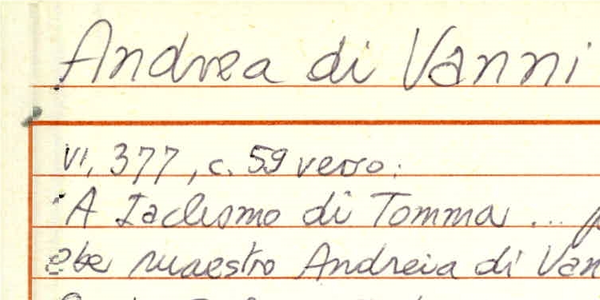 Andrea di Vanni
VI, 377, c. 59 verso:
"A Iachomo di Tomma ...
ebe maestro Andreia di Van